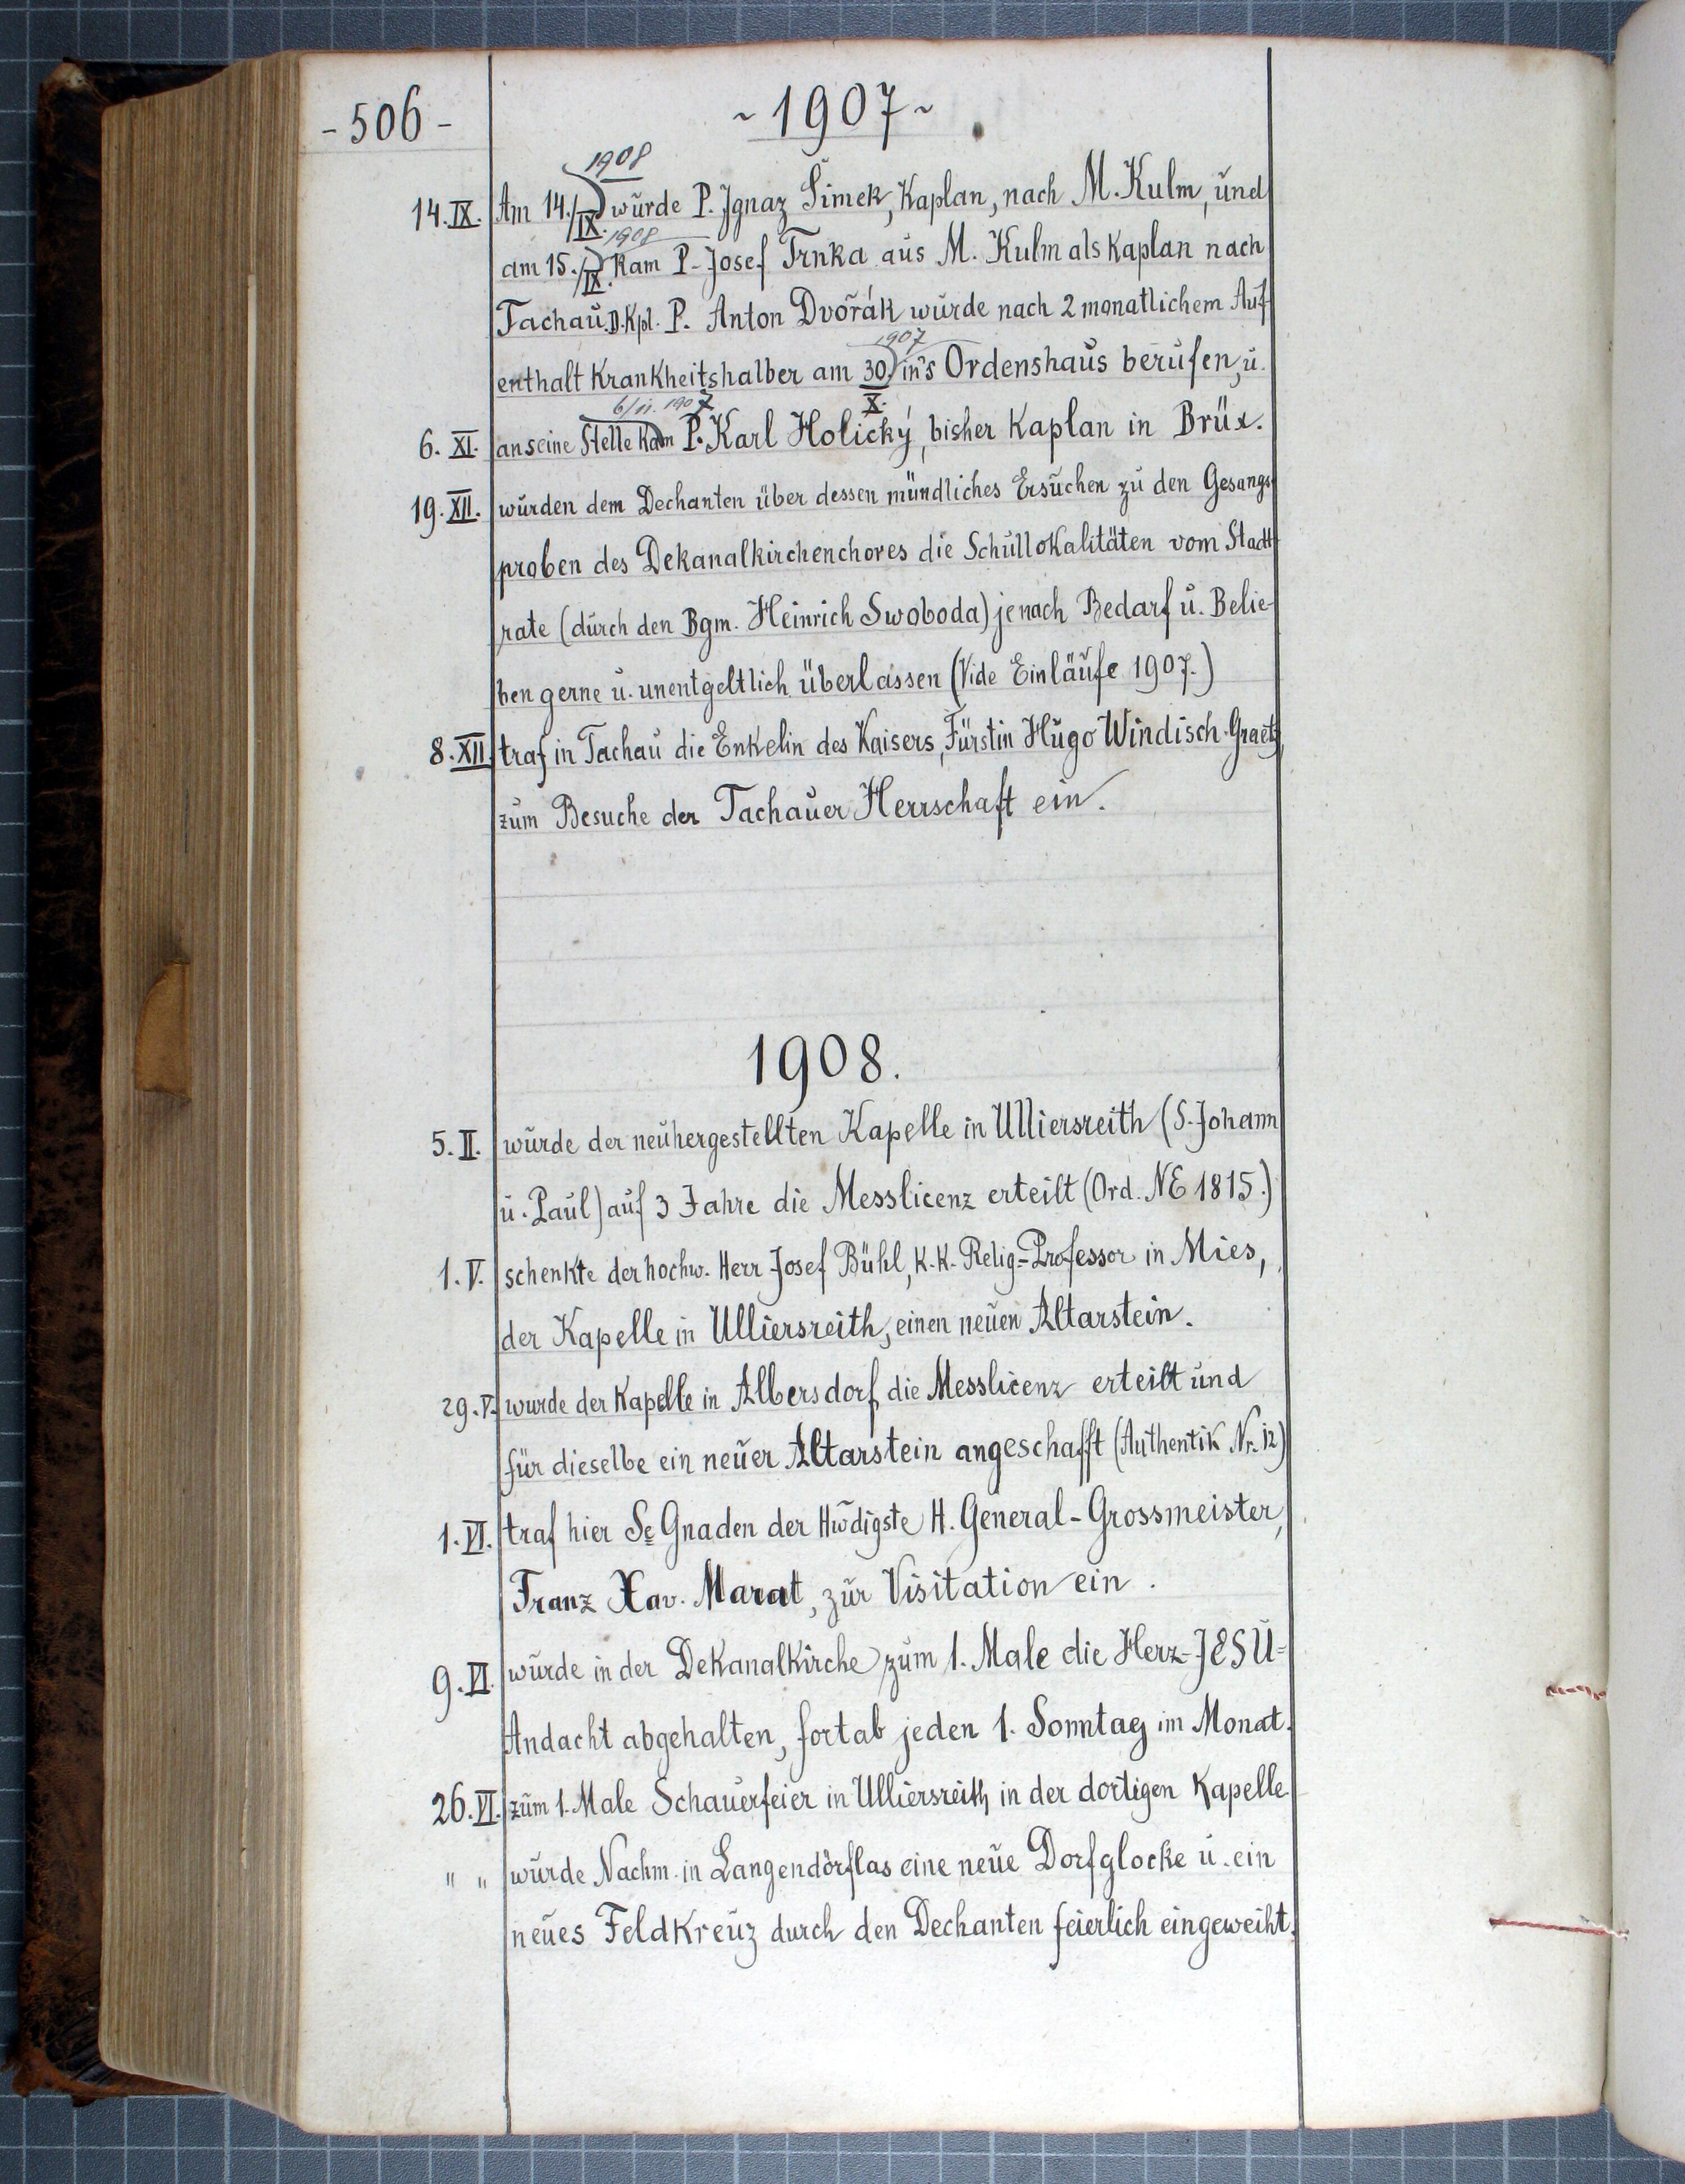 - 506 -
~ 1907 ~
1908
14. IX. Am 14./IX. wurde P. Ignaz Šimek, Kaplan, nach M. Kulm, und
1908
am 15./IX. kam P. Josef Trnka aus M. Kulm als Kaplan nach
Tachau. D. Kpl. P. Anton Dvořák wurde nach 2 monatlichem Auf-
1907
enthalt Krankheitshalber am 30./X. in's Ordenshaus berufen, u.
6/11. 1907
6. XI. an seine Stelle kam P. Karl Holický, bisher Kaplan in Brüx.
19. XII. wurden dem Dechanten über dessen mündliches Ersuchen zu den Gesangs-
proben des Dekanalkirchenchores die Schullokalitäten vom Stadt-
rate (durch den Bgm. Heinrich Swoboda) je nach Bedarf u. Belie-
ben gerne u. unentgeltlich überlassen (Vide Einläufe 1907.)
8. XII. traf in Tachau die Enkelin des Kaisers, Fürstin Hugo Windisch-Graetz,
zum Besuche der Tachauer Herrschaft ein.
1908.
5. II. wurde der neuhergestellten Kapelle in Ulliersreith (S. Johann
u. Paul) auf 3 Jahre die Messlicenz erteilt (Ord. NE 1815.)
1. V. schenkte der hochw. Herr Josef Bühl, K.K. Relig.-Professor in Mies,
der Kapelle in Ulliersreith, einen neuen Altarstein.
29. V. wurde der Kapelle in Albersdorf die Messlicenz erteilt und
für dieselbe ein neuer Altarstein angeschafft (Authentik Nr. 12)
1. VI. traf hier Se Gnaden der Hw̃digste H. General-Grossmeister,
Franz Xav. Marat, zur Visitation ein.
9. VI. wurde in der Dekanalkirche zum 1. Male die Herz-JESU-
Andacht abgehalten, fortab jeden 1. Sonntag im Monat.
26. VI. zum 1. Male Schauerfeier in Ulliersreith, in der dortigen Kapelle.
" " wurde Nachm. in Langendörflas eine neue Dorfglocke u. ein
neues Feldkreuz durch den Dechanten feierlich eingeweiht.